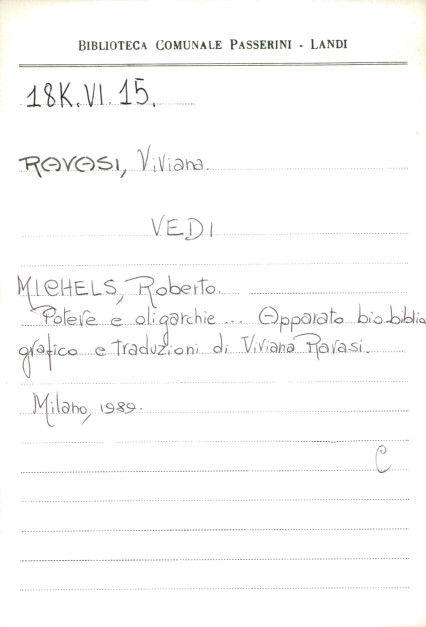 BIBLIOTECA COMUNALE PASSERINI - LANDI
18K.VI.15.
RAVASI, Viviana.
VEDI
MICHELS, Roberto.
Potere e oligarchie... Apparato bio-biblio
grafico e traduzioni di Viviana Ravasi.
Milano, 1989.
C